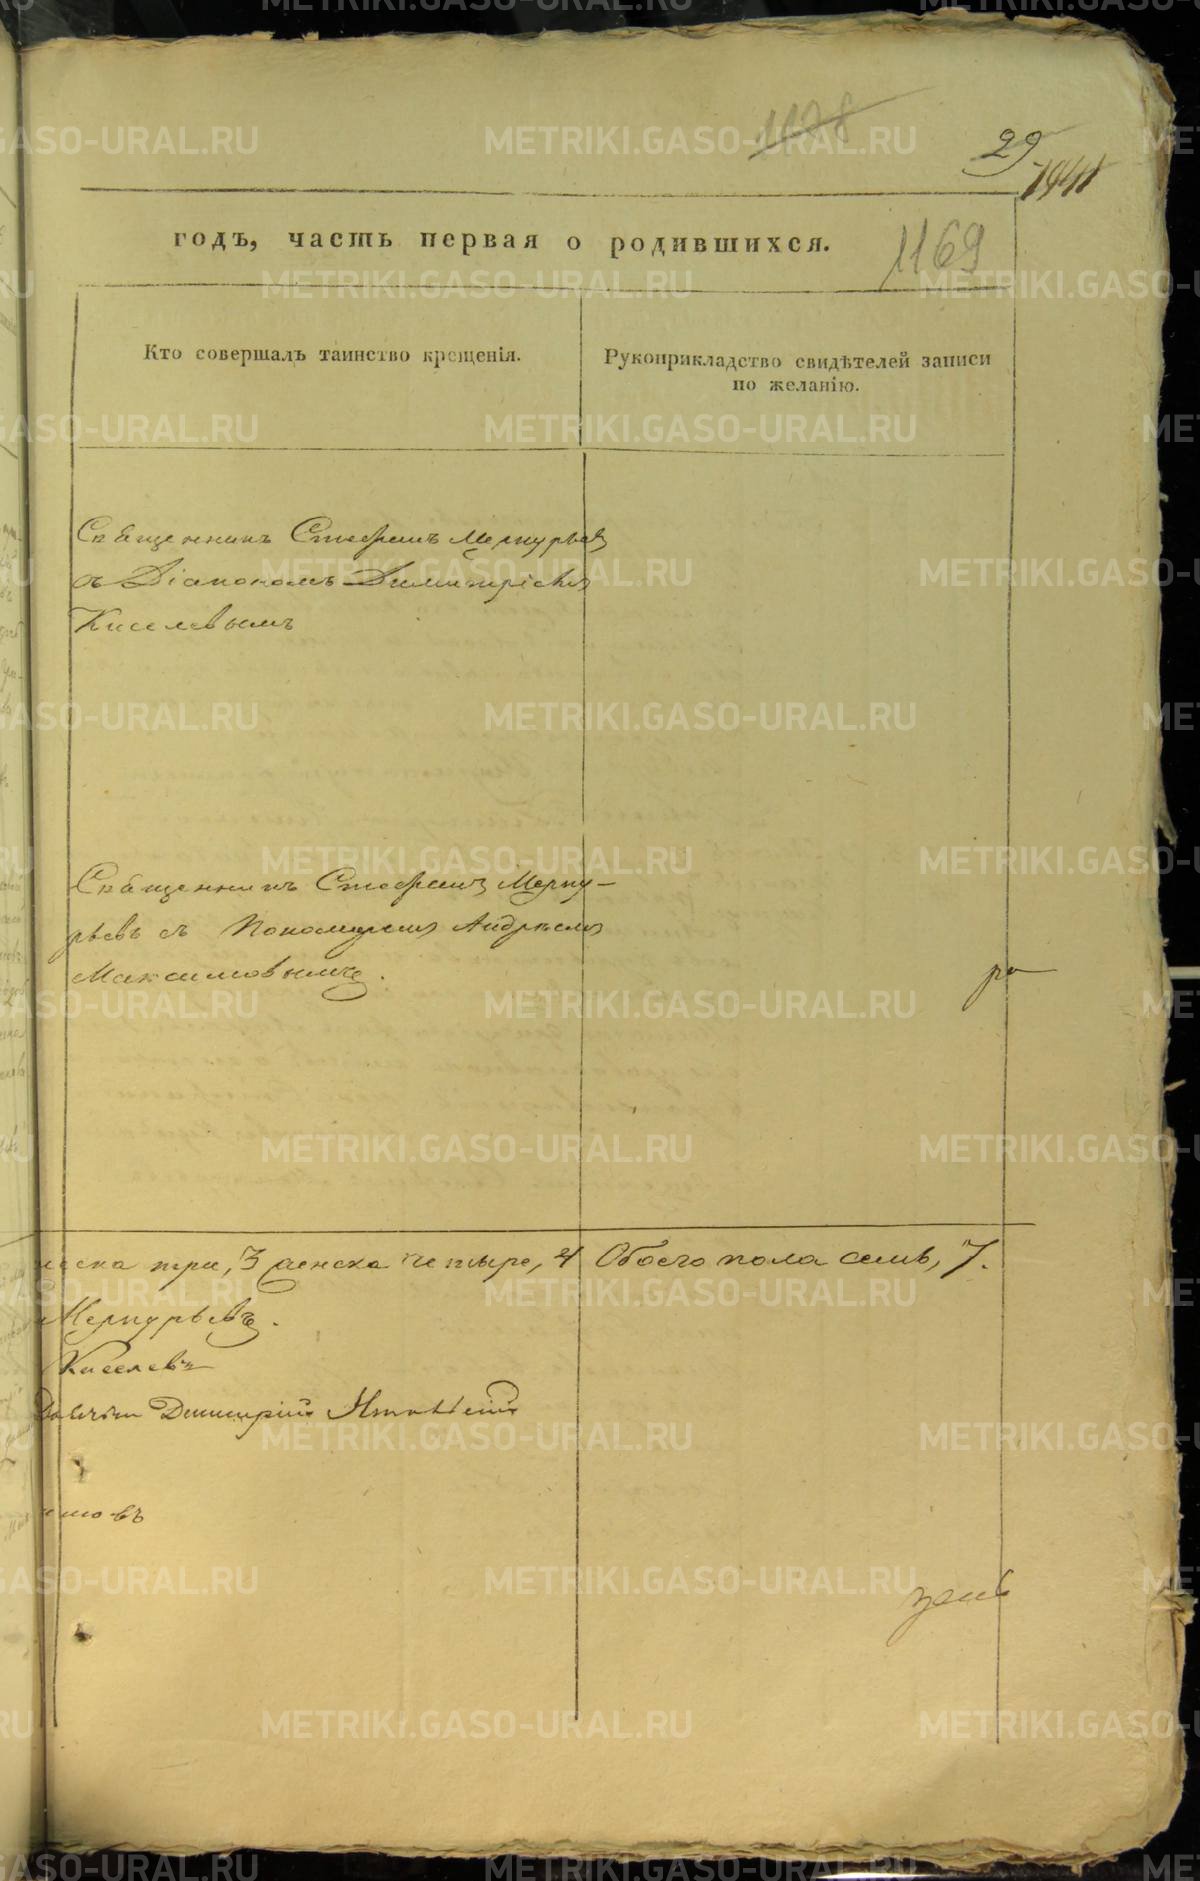 1178
29
1941
годъ, часть первая о родившихся.
1169
Кто совершалъ таинство крещенія.
Рукоприкладство свидѣтелей записи
по желанію.
Священникъ Стефанъ Меркурьев
съ Діакономъ Димитріем
Киселевымъ
Священникъ Стефанъ Мерку-
рьевъ съ Пономарем Андреем
Максимовымъ.
ра
меска три, 3 женска четыре, 4 Обоего пола семь, 7.
Меркурьевъ.
Киселевъ
Димитрій
мовъ
METRIKI.GASO-URAL.RU